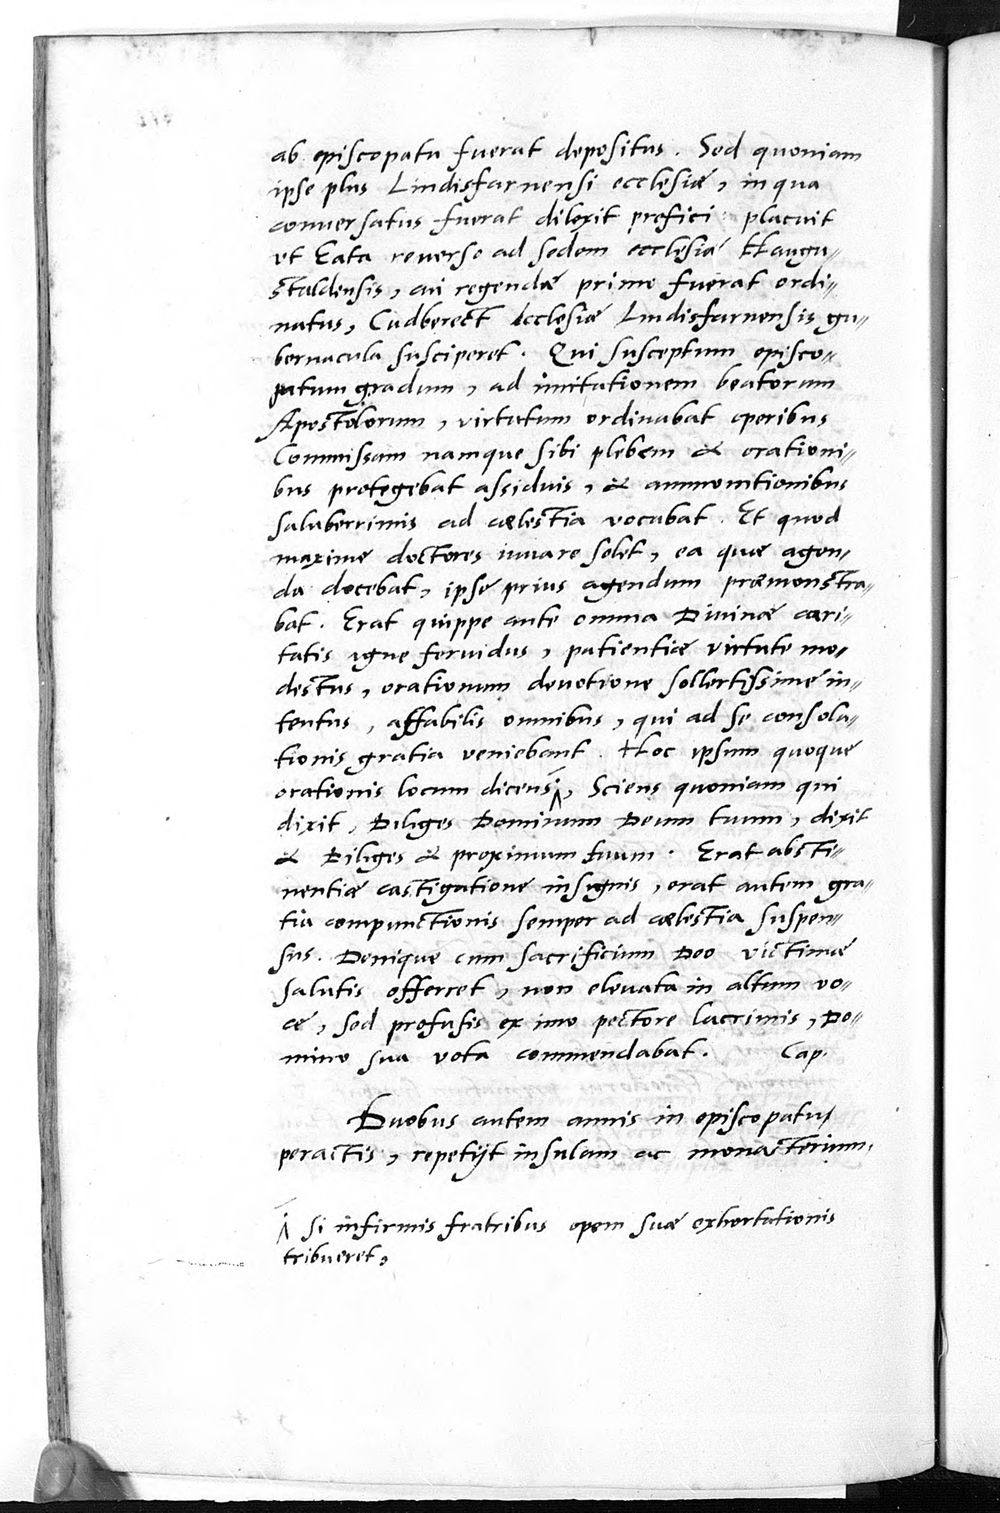 ab episcopatu fuerat depositus. Sed quoniam
ipse plus Lindisfarnensi ecclesiæ, in qua
conuersatus fuerat dilexit præfici: placuit
vt Eata reuerso ad sedem ecclesiæ Haugu⸗
staldensis, cui regendæ primo fuerat ordi⸗
natus, Cudberect Ecclesiæ Lindisfarnensis gu⸗
bernacula susciperet. Qui susceptum episco⸗
patum gradum, ad imitationem beatorum
Apostolorum, virtutum ordinabat operibus
Commissam namque sibi plebem & orationi⸗
bus protegebat assiduis, & ammonitionibus
saluberrimis ad cælestia vocabat. Et quod
maxime doctores iuuare solet, ea quæ agen⸗
da docebat, ipse prius agendum præmonstra⸗
bat. Erat quippe ante omnia Diuinæ cari⸗
tatis igne feruidus, patientiæ virtute mo⸗
destus, orationum deuotione sollertissime in⸗
tentus, affabilis omnibus, qui ad se consola⸗
tionis gratia veniebant. Hoc ipsum quoque
orationis locum dicens, Sciens quoniam qui
dixit, Diliges Dominum Deum tuum, dixit
& Diliges & proximum tuum. Erat absti⸗
nentiæ castigatione insignis, erat autem gra⸗
tia compunctionis semper ad cælestia suspen⸗
sus. Denique cum sacrificium Deo victimæ
salutis offerret, non eleuata in altum vo⸗
ce, sed profusis ex imo pectore lacrimis, Do⸗
mino sua vota commendabat. Cap.
Duobus autem annis in episcopatu
peractis, repetijt insulam ac monasterium,
si infirmis fratribus opem suæ exhortationis
tribueret,